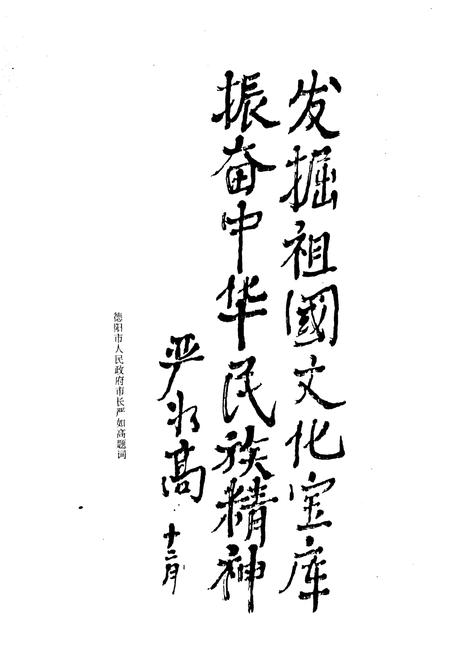 发掘祖國文化宝库
振奋中华民族精神
严如高
十二月
德阳市人民政府市长严如高题词